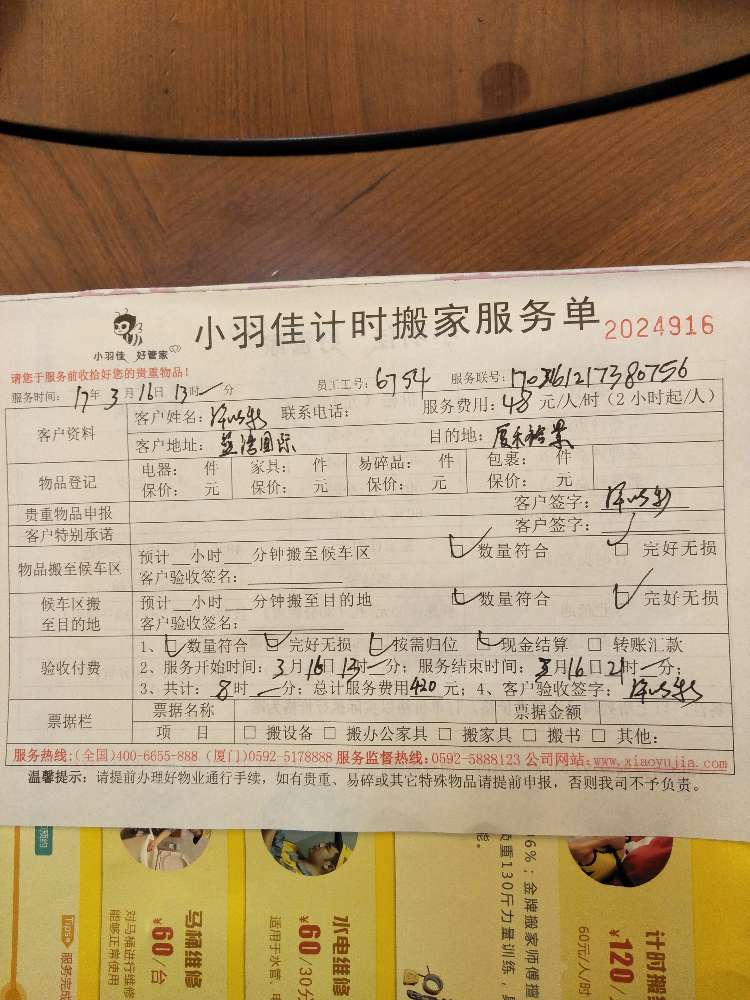 小羽佳 好管家
小羽佳计时搬家服务单 2024916
请您于服务前收拾好您的贵重物品!
服务时间: 17年3月16日13时一分 员工工号: 6754 服务联号: 
客户资料 客户姓名: 联系电话: 服务费用: 48 元/人/时 (2小时起/人)
客户地址: 蓝湾国际 目的地: 
物品登记 电器: 件 家具: 件 易碎品: 件 包裹: 件
保价: 元 保价: 元 保价: 元 保价: 元
贵重物品申报 客户签字:
客户特别承诺 客户签字:
物品搬至候车区 预计__小时__分钟搬至候车区 数量符合 完好无损
客户验收签名:
候车区搬至目的地 预计__小时__分钟搬至目的地 数量符合 完好无损
客户验收签名:
验收付费 1、数量符合 完好无损 按需归位 现金结算 转账汇款
2、服务开始时间: 3月16日13时一分; 服务结束时间: 3月16日21时一分;
3、共计: 8时一分; 总计服务费用420元; 4、客户验收签字:
票据栏 票据名称 票据金额
项目 搬设备 搬办公家具 搬家具 搬书 其他:
服务热线:(全国)400-6655-888 (厦门)0592-5178888 服务监督热线:0592-5888123 公司网站:www.xiaoyujia.com
温馨提示: 请提前办理好物业通行手续, 如有贵重、易碎或其它特殊物品请提前申报, 否则我司不予负责。
Tips
服务完成
马桶维修
¥60/台
对马桶进行维修
能够正常使用
水电维修
¥60/30分
适用于水管、电
能。
负重130斤力量训练,
6%; 金牌搬家师傅擅
计时搬
¥120/
60元/人/时